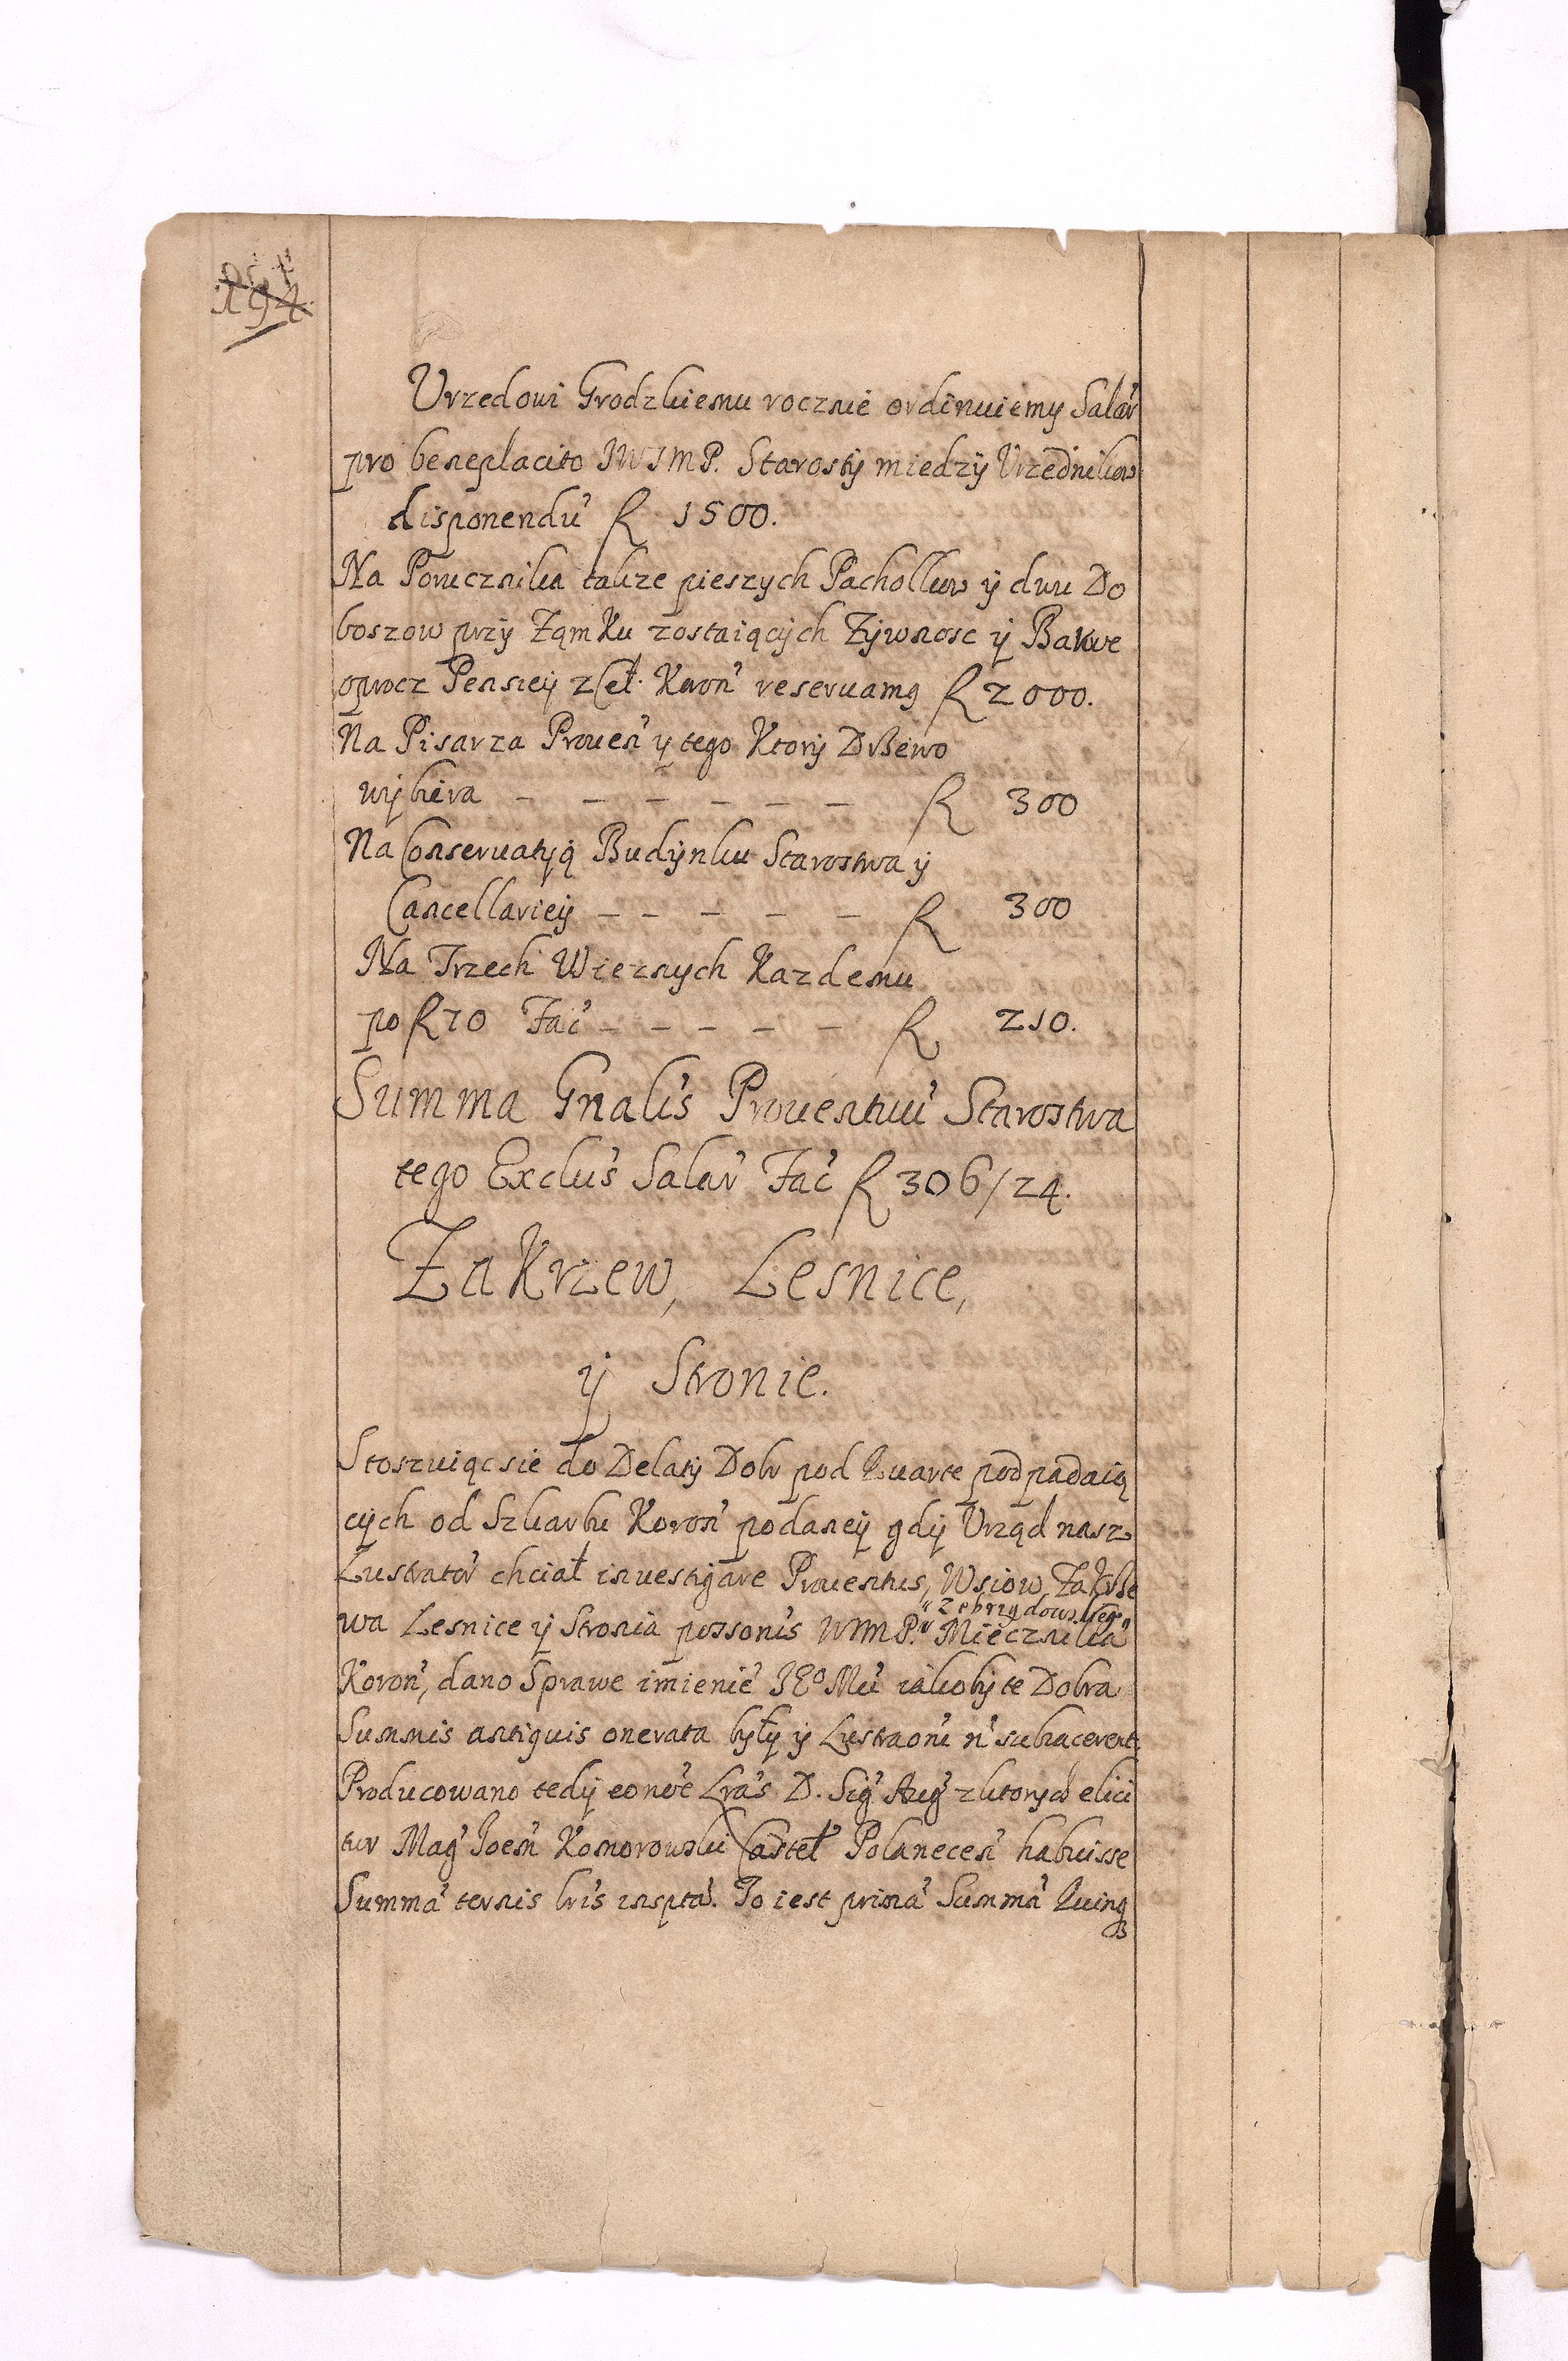 194
Vrzedowi Grodzkiemu rocznie ordinuiemy Salar'
pro beneplacito JWJmP. Starosty miedzy Vrzednikow
disponendu' R 1500.
Na Porucznika takze pieszych Pachołkow y dwu Do
boszow przy Ząmku zostaiących Zywnosc y Barwe
oprocz Pensiey zCeł. Koron' reseruamq R 2000.
Na Pisarza Prouen' y tego Ktory Drzewo
wybiera – – – – – – R 300
Na Conseruatyą Budynku Starostwa y
Cancellariey – – – – – R 300
Na Trzech Wieznych Kazdemu
po R 70 Fac' – – – – – R 210.
Summa Gnalis Prouentuu' Starostwa
tego Exclus' Salar' Fac' R 306/24.
ZaKrzew, Lesnice,
y Stronie.
Stoszuiąc sie do Delaty Dobr pod Quarte podpadaią
cych od Szkarbu Koron' podaney gdy Vrząd nasz
Lustrator' chciał inuestigare Prouentus, Wsiow, ZaKrze
"Zebrzydowskieg"
wa Lesnice y Stronia possonis WJmP." Miecznika
Koron', dano Sprawe imienie' JEo Mci' iakoby te Dobra
Summis antiquis onerata były y Lustraoni' n' subiacerent
Producowano tedy eonoe' Lras' D. Sig' Aug' z ktorych elici
tur Mag' Joem' Komorowski Casteł' Polanecen' habuisse
Summa' ternis lris' inspta'. To iest prima' Summa' Quinq